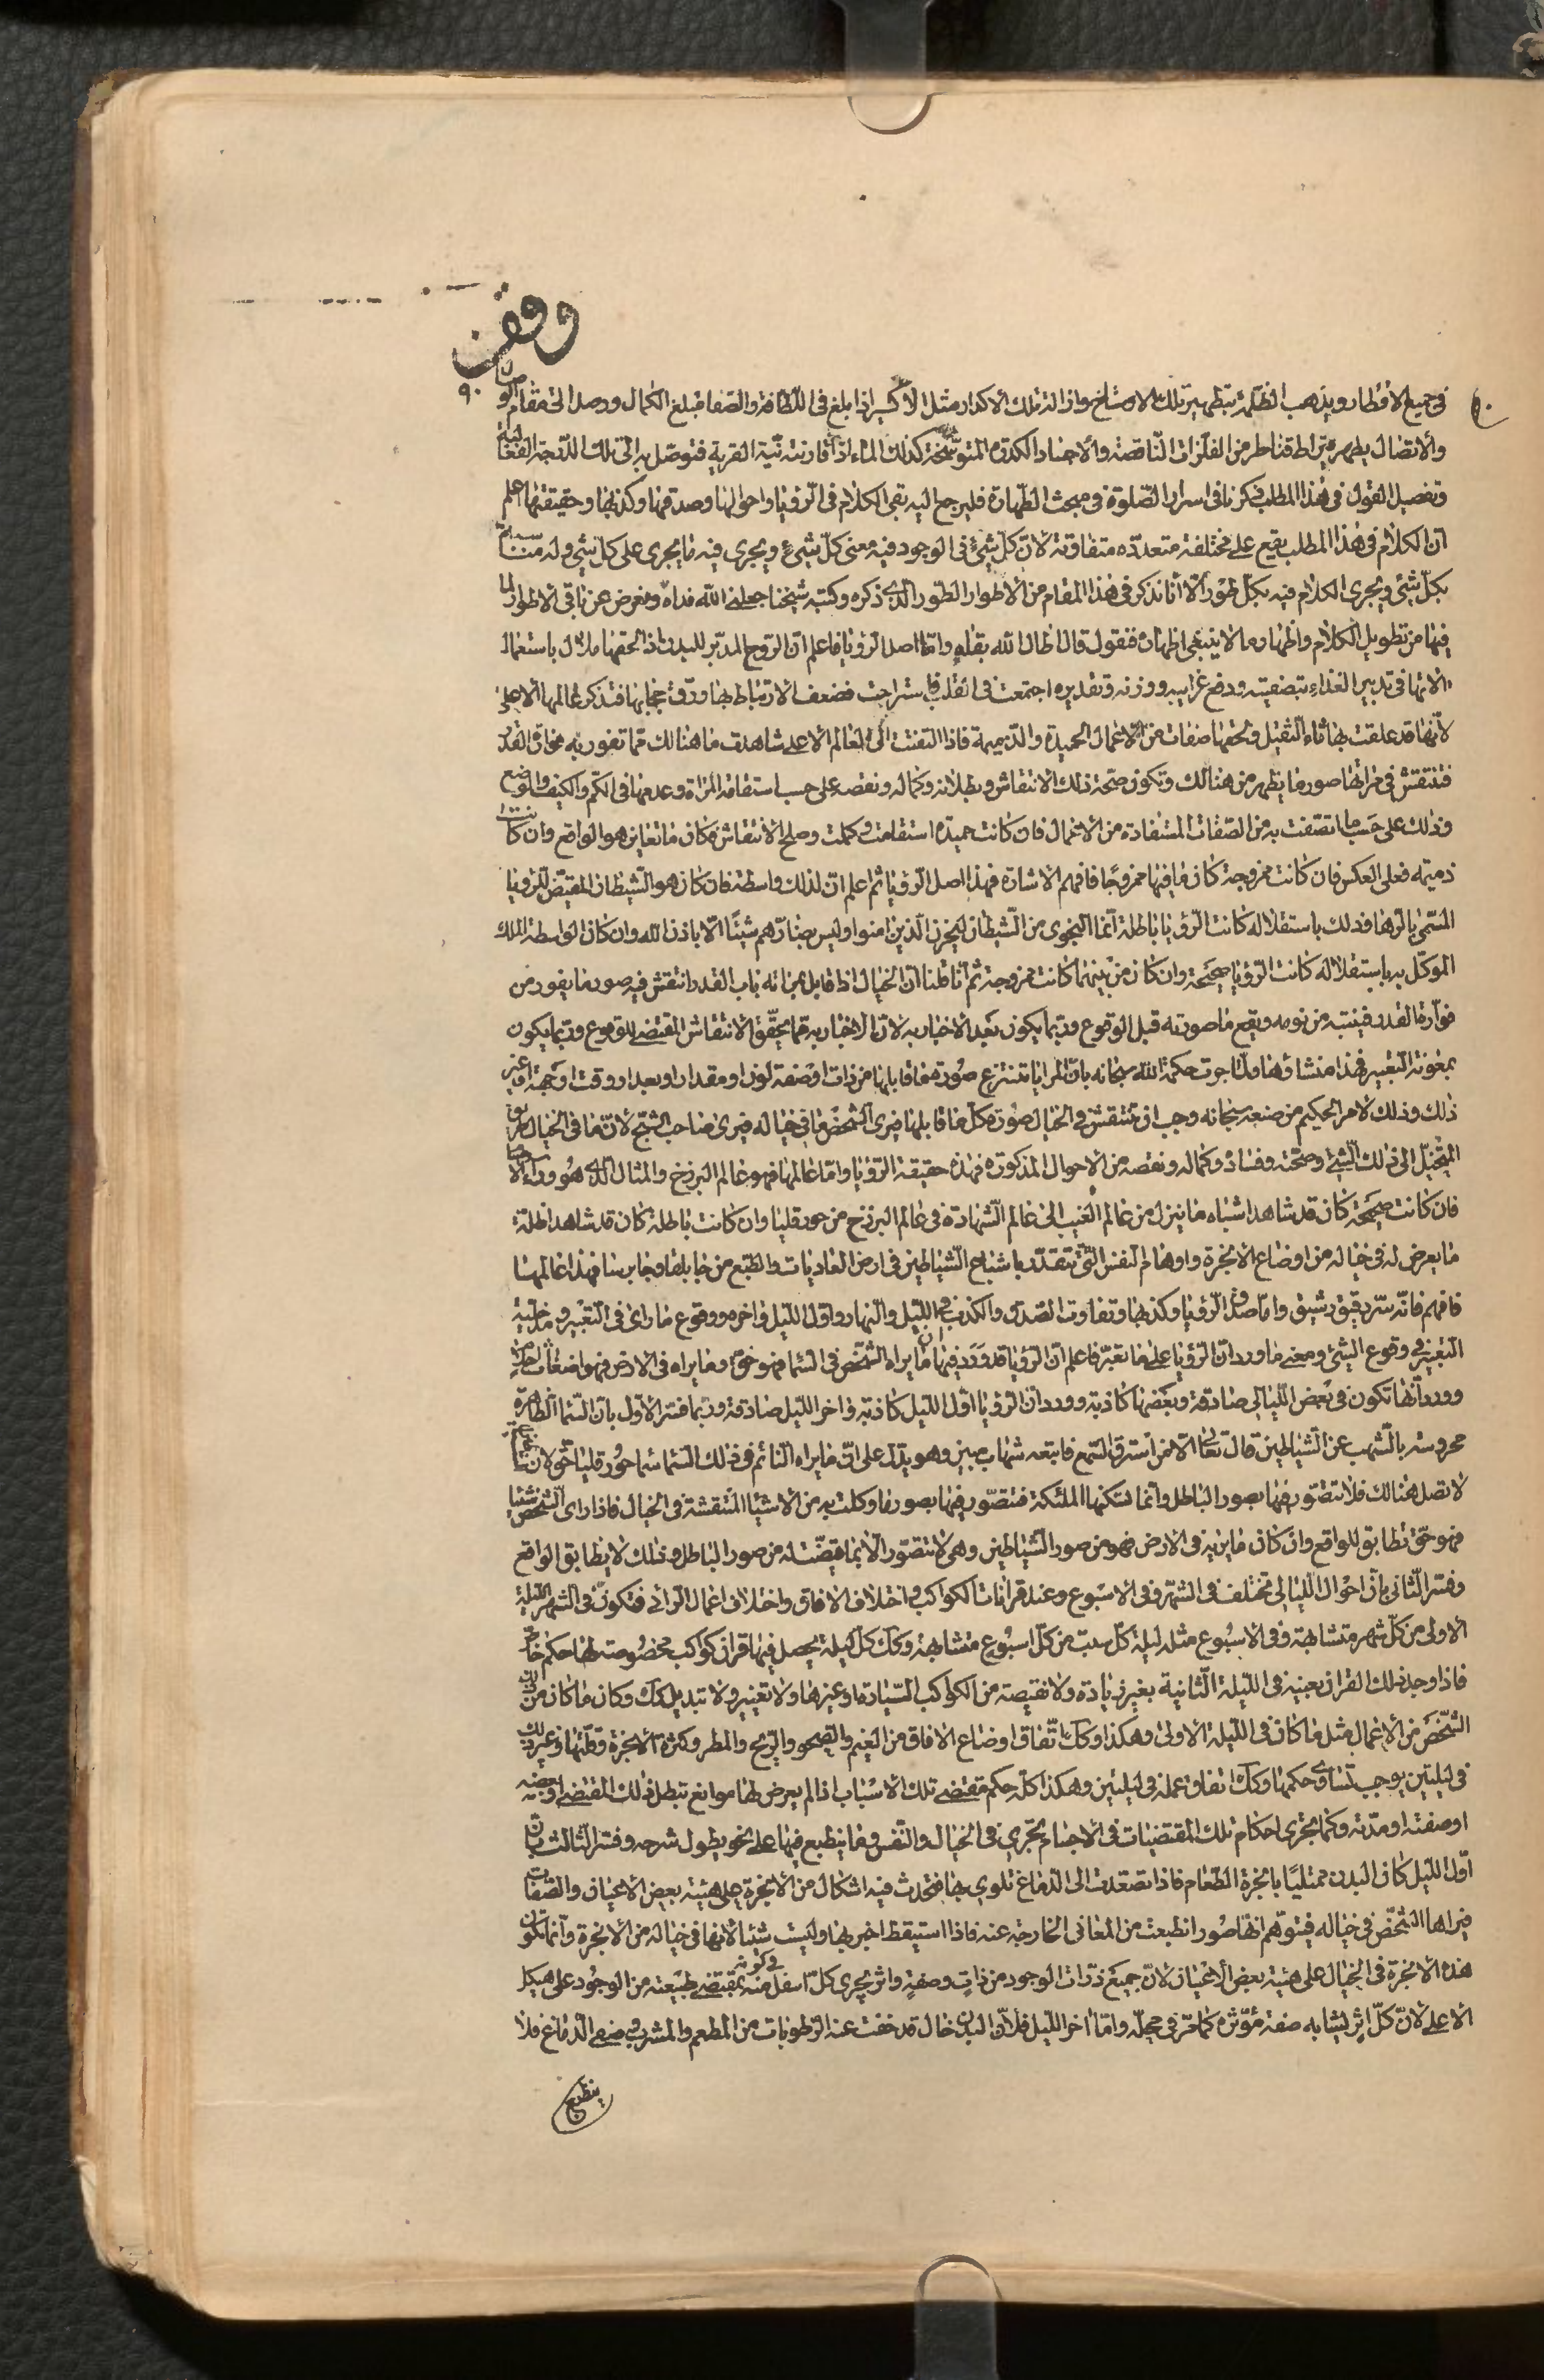 وقف
٩٠
فى جميع الاقطار ويذهب الظلمة بتطهير تلك الاوساخ واذالة تلك الاكدار مثل الاكسير اذا بلغ فى اللطافة والصفا مبلغ الكمال ووصل الى مقام الوصال
والاتصال يطهر قيراط قناطر من الفلزات الناقصة والاجساد الكدرة المتوسخة كذلك الماء اذا قارنته نية القربة فتوصل به الى تلك الدرجة
وتفصيل القول فى هذا المطلب ذكرنا فى اسرار الصلوة فى مبحث الطهارة فليرجع اليه بقى الكلام فى الرؤيا واحوالها وصدقها وكذبها وحقيقتها اعلم
ان الكلام فى هذا المطلب يقع على مختلفة متعدده متفاوتة لانّ كل شئ فى الوجود فيه معنى كل شئ ويجرى فيه ما يجرى على كل شئ وله مناسبة
بكلّ شئ ويجرى الكلام فيه بكل طور الا انا نذكر فى هذا المقام من الاطوار الطور الذى ذكره وكتبه شيخنا جعلنى الله فداه ونعرض عن باقى الاطوار لما
فيها من تطويل الكلام واظهار ما لا ينبغى اظهاره فنقول قال اطال الله بقاه وامّا اصل الرؤيا فاعلم انّ الروح المدبّر للبدن اذا لحقها ملال باستعمال
الاتها فى تدبير الغذاء بتصفيته ودفع غرايبه ووزنه وتقديره اجتمعت فى القلب فاستراحت فضعف الارتباط بها ورقّ حجابها فتذكر عالمها الاعلى
لانّها قد علقت بها اثار الثقيل ولحقها صفات من الاعمال الحميدة والذميمة فاذا التفتت الى العالم الاعلى شاهدت ما هنالك مما تفور به فوارة القدر
فتنقش فى مراتها صور ما يظهر من هنالك وتكون صحة ذلك الانتقاش وبطلانه وكماله ونقصه على حسب استقامة المراة وعدمها فى الكم والكيف والوضع
وذلك على حسب ما اتصفت به من الصفات المستفادة من الاعمال فان كانت حميدة استقامت وكملت وصلح الانتقاش فكان ما تعاين هو الواقع وان كانت
ذميمة فعلى العكس فان كانت ممزوجة كان ما فيها ممزوجًا فافهم الاشارة فهذا اصل الرؤيا ثم اعلم انّ لذلك واسطة فان كان هو الشيطان المقيّض للرؤيا
المسمّى بالرها وذلك باستقلاله كانت الرؤيا باطلة انّما النجوى من الشيطان ليحزن الذين امنوا وليس بضارّهم شيئًا الّا باذن الله وان كان الواسطة الملك
الموكّل به باستقلاله كانت الرؤيا صحيحة وان كان من بينهما كانت ممزوجة ثم انا قلنا ان الخيال اذا قابل بمراته باب القدر انتقش فيه صور ما يفور من
فوّارة القدر فينتبه من نومه ويقع ما صورته قبل الوقوع وربّما يكون بعد الاخبار به لانّ الاخبار به مما يحقّق الانتقاش المقتضى للوقوع وربّما يكون
بمعونة التعبير فهذا منشاؤها ولمّا جرت حكمة الله سبحانه بانّ المرايا تنتزع صورة ما قابلها من ذات او صفة لون او مقدار او بعد او وقت او جهة او غير
ذلك وذلك لامر الحكيم من صنعه سبحانه وجب ان تنتقش فى الخيال صورة كل ما قابلها فيرى الشخص ما فى خياله فيرى صاحب الشبح لانّ ما فى الخيال طريق
المتخيّل الى ذلك الشئ وصحّته وفساده وكماله ونقصه من الاحوال المذكورة فهذه حقيقة الرؤيا وامّا عالمها فهو عالم البرزخ والمثال الذى هو وراء الاجسام
فان كانت صحيحة كان قد شاهد اشباه ما نزل من عالم الغيب الى عالم الشهادة فى عالم البرزخ من هورقليا وان كانت باطلة كان قد شاهد اظلة
ما يعرض له فى خياله من اوضاع الابخرة واوهام النفس الّتى تتقدّر باشباح الشياطين فى ارض العاديات والطبع من جابلقا وجابرسا فهذا عالمها
فافهم فانّه سرّ دقيق رشيق وامّا صدق الرؤيا وكذبها وتفاوت الصدق والكذب فى الليل والنهار واوّل الليل واخره ووقوع ما راى فى التعبير ومدخلية
التعبير فى وقوع الشئ ومعنى ما ورد ان الرؤيا على ما تعبّر فاعلم انّ الرؤيا قد ورد فيها ان ما يراه الشخص فى السّما فهو حق وما يراه فى الارض فهو اضغاث احلام
وورد انّها تكون فى بعض اللّيالى صادقة وبعضها كاذبة وورد ان الرؤيا اوّل الليل كاذبة واخر الليل صادقة وربّما فسّر الاوّل بانّ السّما الظاهرة
محروسة بالشهب عن الشياطين قال تعالى الّا من استرق السّمع فاتبعه شهاب مبين وهو يدلّ على انّ ما يراه النائم فى ذلك السّما سّما هورقليا حق لان الشياطين
لا تصل هنالك فلا تتصوّر فيها بصور الباطل وانّما تسكنها الملئكة فتتصوّر فيها بصور ما وكلت به من الاشيا المنتقشة فى الخيال فاذا راى الشخص شيئا
فهو حقّ تطابق للواقع وان كان ما يريه فى الارض فهو من صور الشياطين وهى لا تتصوّر الّا بما قيّضت له من صور الباطل وذلك لا يطابق الواقع
وفسّر الثّانى بانّ احوال الليالى تختلف فى الشهر وفى الاسبوع وعند قرانات الكواكب واختلاف الافاق واختلاف اعمال الرائى فتكون فى الشهر الليلة
الاولى من كلّ شهر متشابهة وفى الاسبوع مثل ليلة كلّ سبت من كلّ اسبوع متشابهة وكذلك كلّ ليلة يحصل فيها قران كواكب مخصوصة لها حكم خاصّ
فاذا وجد ذلك القران بعينه فى الليلة الثّانية بغير زيادة ولا نقيصة من الكواكب السّيارة او غيرها ولا تغيير ولا تبديل كك وكان ما كان من
الشّخص من الاعمال مثل ما كان فى الليلة الاولى وهكذا وكك اتّفاق اوضاع الافاق من الغيم والصحو والريح والمطر وكثرة الابخرة وقلّتها وغير ذلك
فى ليلتين يوجب تساوى حكمها وكك اتفاق عمله فى ليلتين وهكذا كلّه حكم مقتضى تلك الاسباب اذا لم يعرض لها موانع تبطل ذلك المقتضى او بعضه
او صفته او مدّته وكما يجرى احكام تلك المقتضيات فى الاجسام يجرى فى الخيال والنّفس وما ينطبع فيها على نحو يطول شرحه وفسّر الثالث بان
اوّل الليل كان البدن ممتليًا بابخرة الطّعام فاذا تصعّدت الى الدماغ تلوى بها فتحدث فيه اشكال من الابخرة على هيئة بعض الاعيان والصّفات
فيراها الشّخص فى خياله فيتوهم انّها صور انطبعت من المعانى الخارجة عنه فاذا استيقظ اخبر بها وليست شيئا لانّها فى خياله من الابخرة وانّما تكون
هذه الابخرة فى الخيال على هيئة بعض الاعيان لانّ جميع ذرّات الوجود من ذات وصفة واثر يجرى كلّ اسفل منه فى كونه بمقتضى طبيعته من الوجود على هيكل
الاعلى لانّ كلّ اثر يشابه صفة مؤثره كما مرّ فى محلّه وامّا اخر الليل فلانّ البدن خال قد خفت عنه الرطوبات من المطعم والمشرب وصفى الدماغ فلا
ينطبع